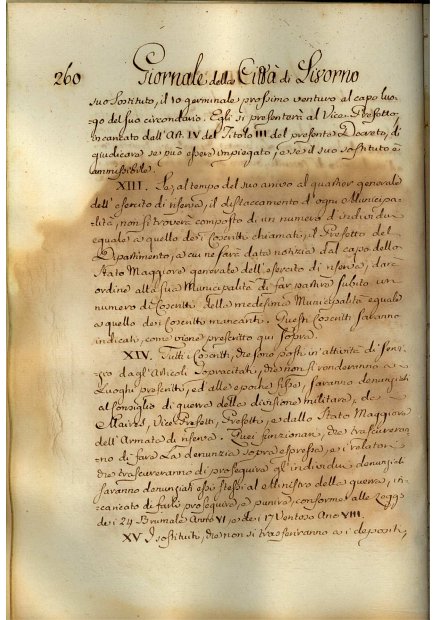 260 Giornale della Città di Livorno
suo sostituto, il 10 germinale prossimo venturo al capo luo-
go del suo circondario. Egli si presenterà al Vice-Prefetto,
incaricato dall'Art. IV del Titolo III del presente Decreto, di
giudicare se può essere impiegato, e se il suo sostituto è
ammissibile.
XIII. Se, al tempo del suo arrivo al quartier generale
dell'esercito di riserva, il distaccamento d'ogni Municipa-
lità, non si troverà composto di un numero d'individui
eguale a quello dei Coscritti chiamati, il Prefetto del
Dipartimento, a cui ne sarà data notizia dal capo dello
Stato Maggiore generale dell'esercito di riserva, darà
ordine alla sua Municipalità di far partire subito un
numero di Coscritti della medesima Municipalità eguale
a quello dei Coscritti mancanti. Questi Coscritti saranno
indicati, come viene prescritto qui sopra.
XIV. Tutti i Coscritti, che sono posti in attività di servi-
zio dagl'Articoli sopracitati, che non si renderanno a
Luoghi prescritti, ed alle epoche fisse, saranno denunziati
al Consiglio di guerra della divisione militare, da
Maires, Vice-Prefetti, Prefetti, e dallo Stato Maggiore
dell'Armata di riserva. Quei funzionari, che trascureran-
no di fare la denunzia sopra espressa, e i relatori
che trascureranno di proseguire gl'individui denunziati
saranno denunziati essi stessi al Ministro della guerra, in-
caricato di farli proseguire, e punire, conforme alle Leggi
dei 24 Brumale Anno VI, e dei 17 Ventoso Ano VIII.
XV. I sostituti, che non si trasferiranno a i depositi,